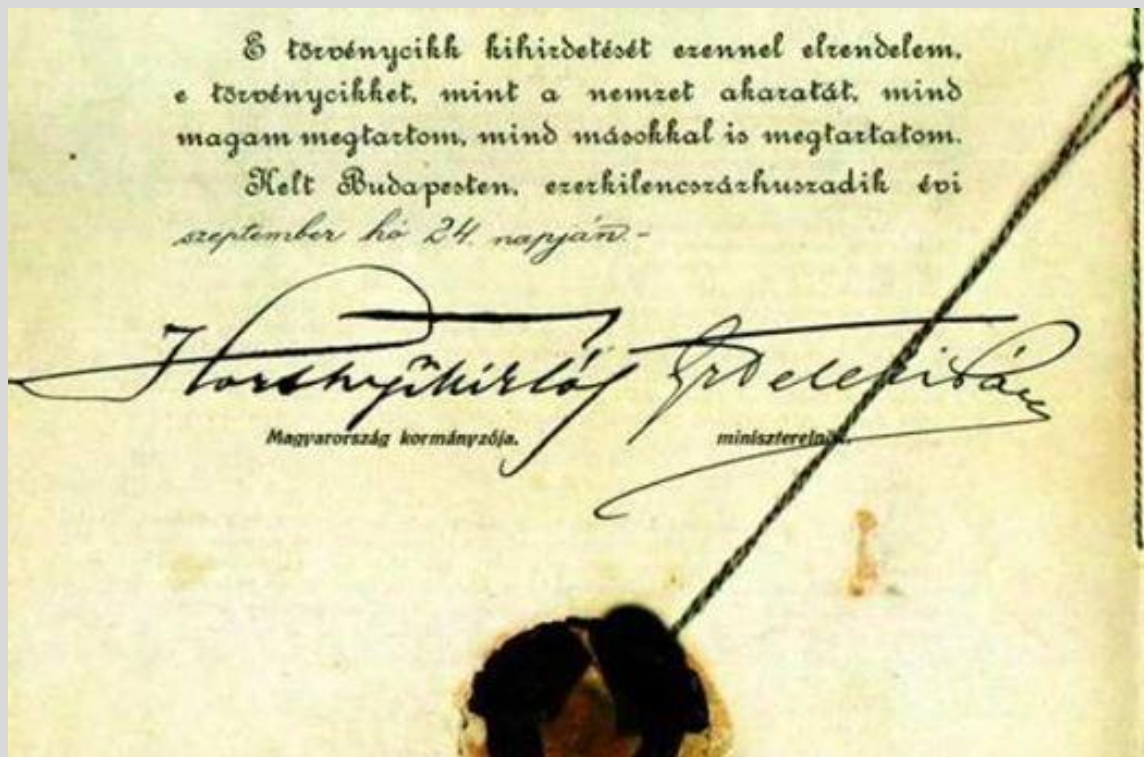 E törvénycikk kihirdetését ezennel elrendelem,
e törvénycikket, mint a nemzet akaratát, mind
magam megtartom, mind másokkal is megtartatom.
Kelt Budapesten, ezerkilencszázhuszadik évi
szeptember hó 24. napján.-
Horthy Miklós Gr Teleki Pál
Magyarország kormányzója. miniszterelnök.